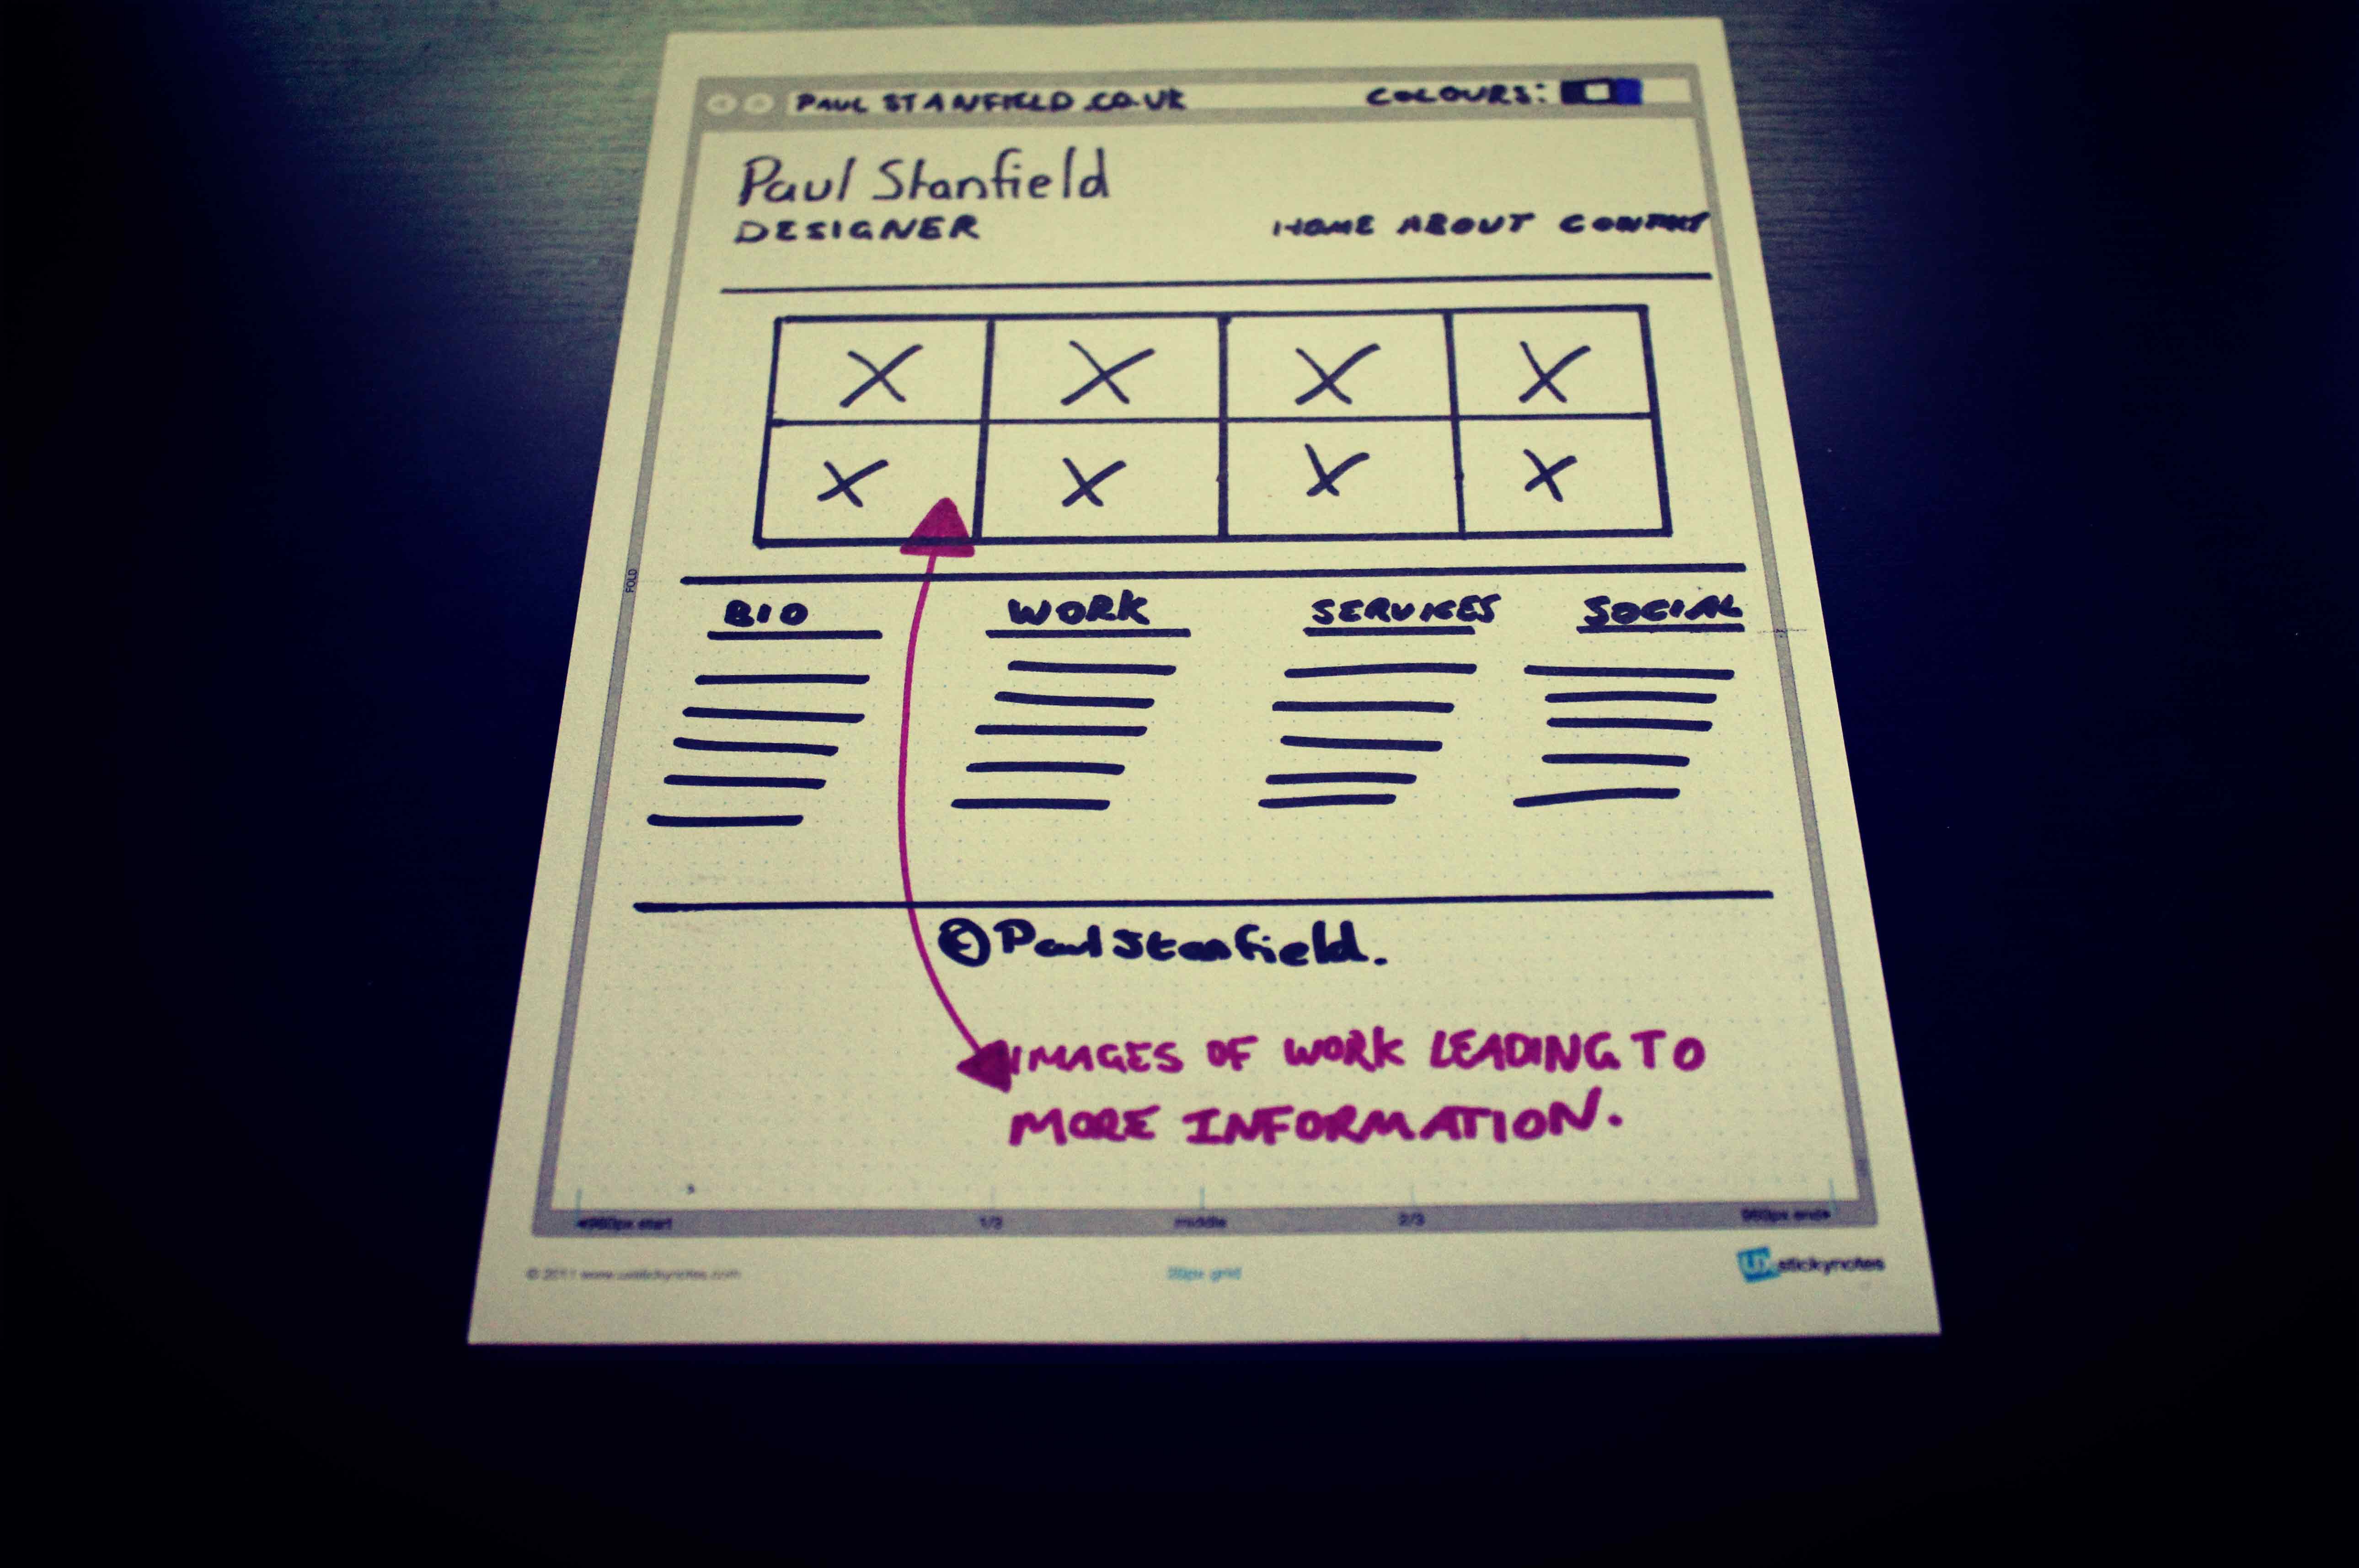 PAUL STANFIELD.CO.UK COLOURS:
Paul Stanfield
DESIGNER
HOME ABOUT CONTACT
FOLD
BIO WORK SERVICES SOCIAL
© Paul Stanfield.
IMAGES OF WORK LEADING TO
MORE INFORMATION.
960px start 1/3 middle 2/3 960px end
© 2011 www.uxstickynotes.com 20px grid UX stickynotes